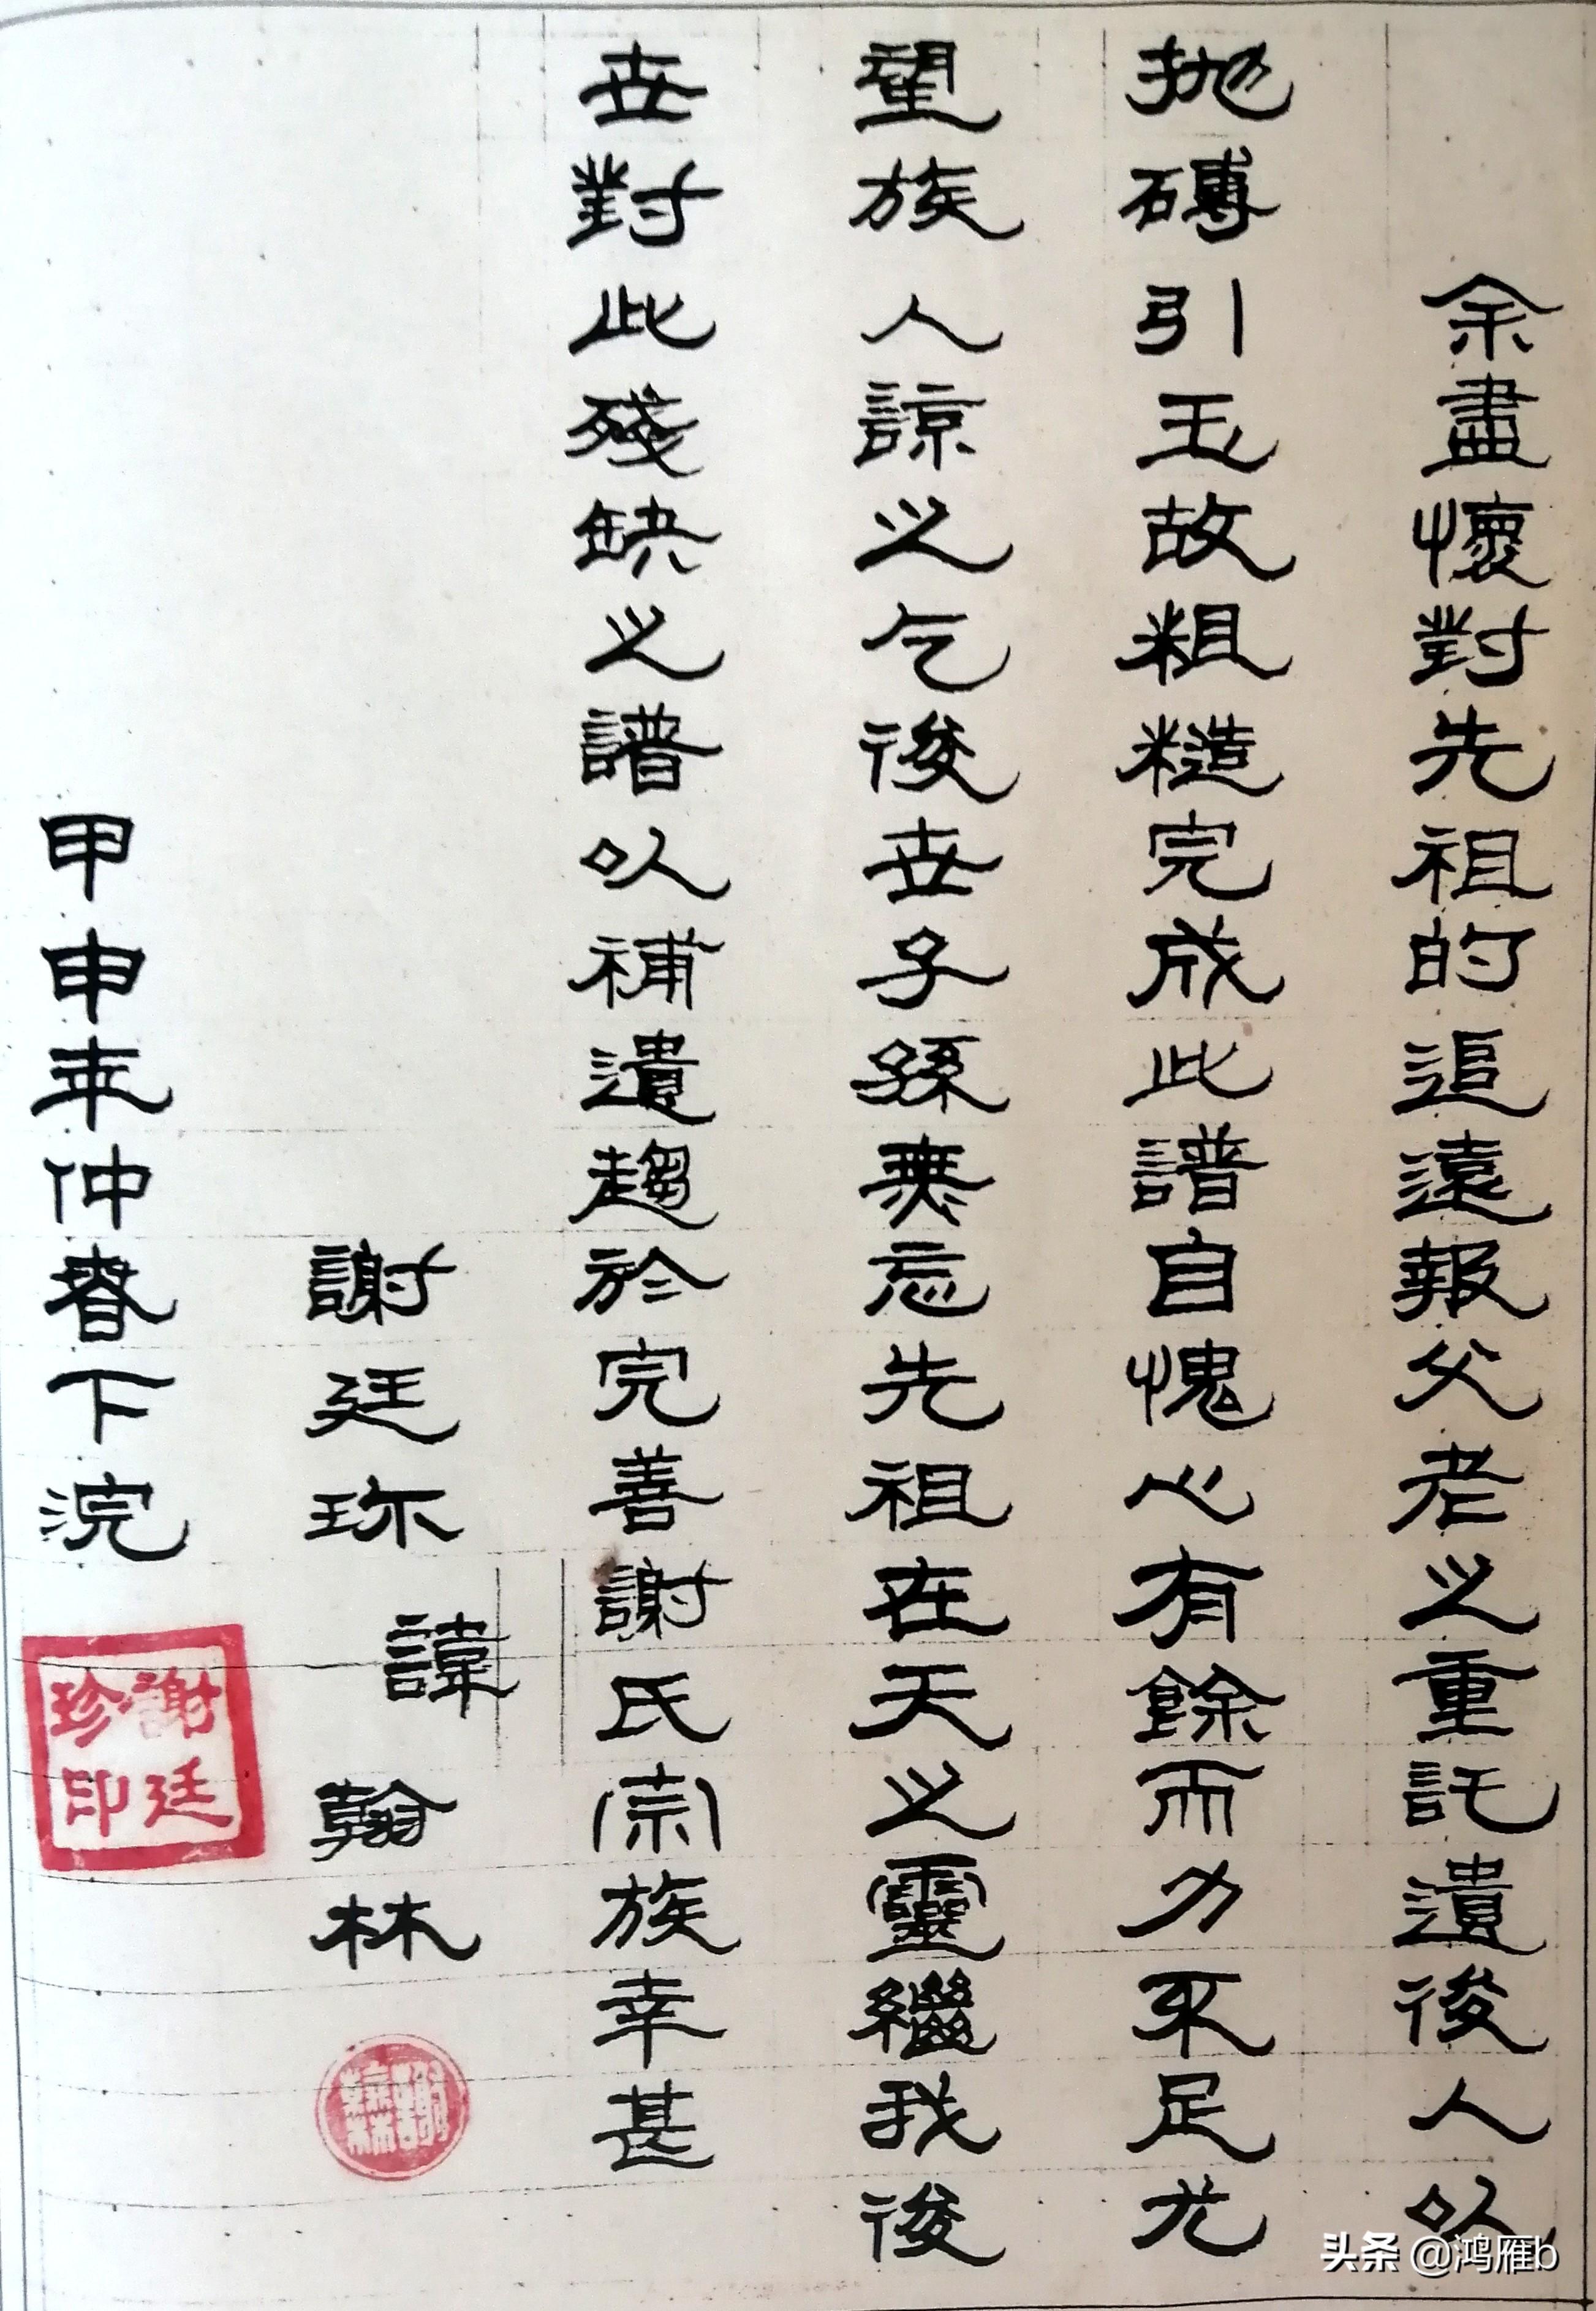 余盡懷對先祖的追遠報父老之重託遺後人以
抛磚引玉故粗糙完成此譜自愧心有餘而力不足尤
望族人諒之乞後世子孫無忘先祖在天之靈繼我後
世對此殘缺之譜以補遺趨於完善謝氏宗族幸甚
謝廷珎 諱 翰林
甲申年仲春下浣
謝廷珍印
头条 @鸿雁b